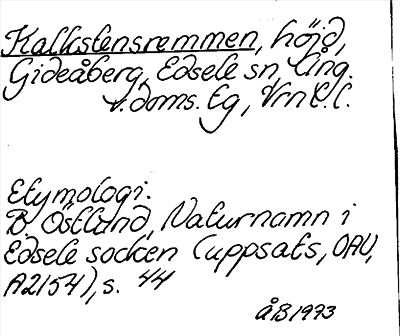 Kalkstensremmen, höjd,
Gideåberg, Edsele sn, Ång.
v. doms. tg, Vrnl. l.
Etymologi.
B. Östlund, Naturnamn i
Edsele socken (uppsats, OAU,
A2154), s. 44
ÅB 1973